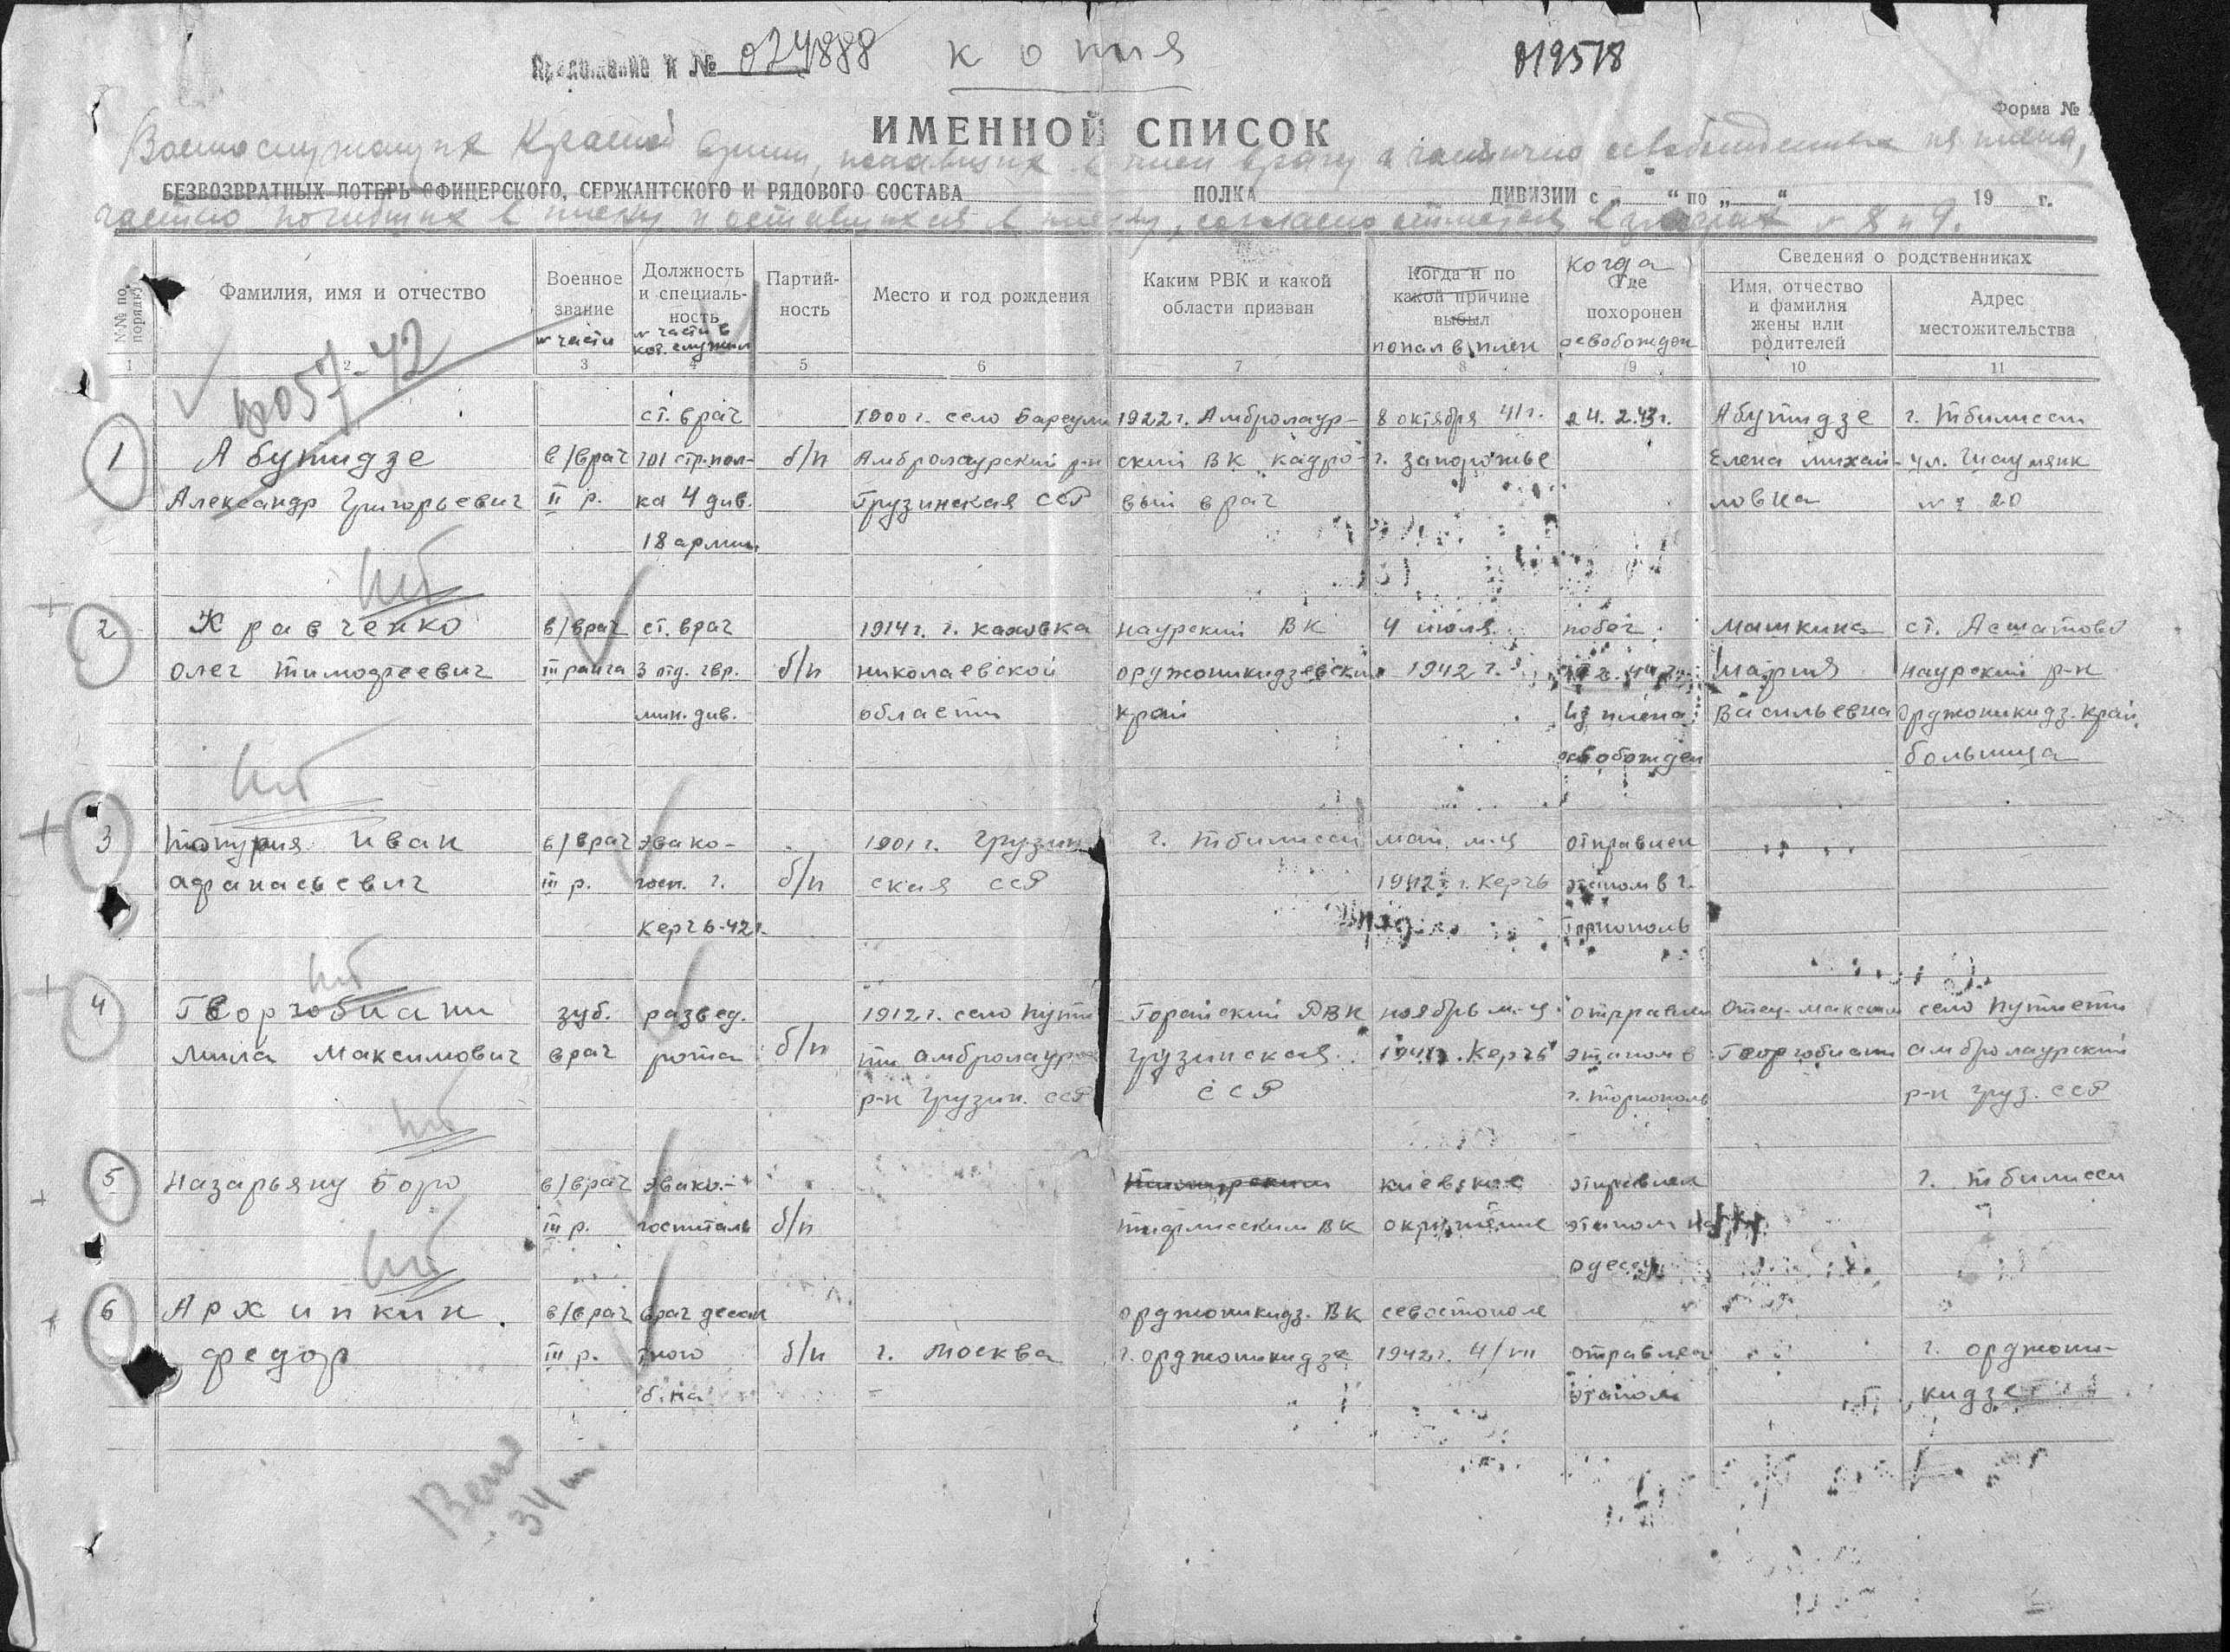 Приложение к № 024888 копия 019518
Форма №
ИМЕННОЙ СПИСОК
Военнослужащих Красной Армии, попавших в плен врагу и частично освобожденных из плена,
БЕЗВОЗВРАТНЫХ ПОТЕРЬ ОФИЦЕРСКОГО, СЕРЖАНТСКОГО И РЯДОВОГО СОСТАВА ПОЛКА ДИВИЗИИ с „ “ по „ “ 19 г.
частью погибших в плену и оставшихся в плену, согласно отметок в графах № 8 и 9.
№№ по порядку
Фамилия, имя и отчество
Военное звание
№ части
Должность и специальность
№ части в кот. служил
Партийность
Место и год рождения
Каким РВК и какой области призван
Когда и по какой причине выбыл
попал в плен
когда
Где похоронен
освобожден
Сведения о родственниках
Имя, отчество и фамилия жены или родителей
Адрес местожительства
1 2 3 4 5 6 7 8 9 10 11
057-42
ст. врач 1900 г. село 1922 г. Амбролаур- 8 октября 41 г. 24.2.43 г. Абутидзе г. Тбилисси
1 Абутидзе в/врач 101 стр. пол- б/п Амбролаурский р-н ский ВК кадро- г. Запорожье Елена Михай- ул. Шаумянк
Александр Григорьевич II р. ка 4 див. Грузинская ССР вый врач ловна № 20
18 армии
2 Кравченко в/врач ст. врач 1914 г. г. Каховка Наурский ВК 4 июля побег Машкина ст.
Олег Тимофеевич III ранга 3 отд. гвр. б/п Николаевской Орджоникидзевский 1942 г. Мария Наурский р-н
мин. див. области край из плена Васильевна Орджоникидз. край
освобожден больница
3 Топурия Иван в/врач эвако- 1901 г. Грузин г. Тбилисси май м-ц отправлен
Афанасьевич III р. госп. г. б/п ская ССР 1942 г. Керчь этапом в г.
Керчь-42 г. Тернополь
4 Георгобиани зуб. развед. 1912 г. село Горийский РВК ноябрь м-ц отправлен Отец-Максим село
Максимович врач рота б/п Амбролаурск Грузинская г. Керчь этапом в Георгобиани Амбролаурский
р-н Грузин. ССР ССР г. Тернополь р-н Груз. ССР
5 Назарьянц в/врач эвако- Киевское отправлен г. Тбилисси
III р. госпиталь б/п Тифлисским ВК окружение этапом на
Одессу
6 Архипкин в/врач врач десан Орджоникидз. ВК Севостополе
Федор III р. тного б/п г. Москва г. Орджоникидзе 1942 г. 4/VII отправлен г. Орджони-
б-на этапом кидзе